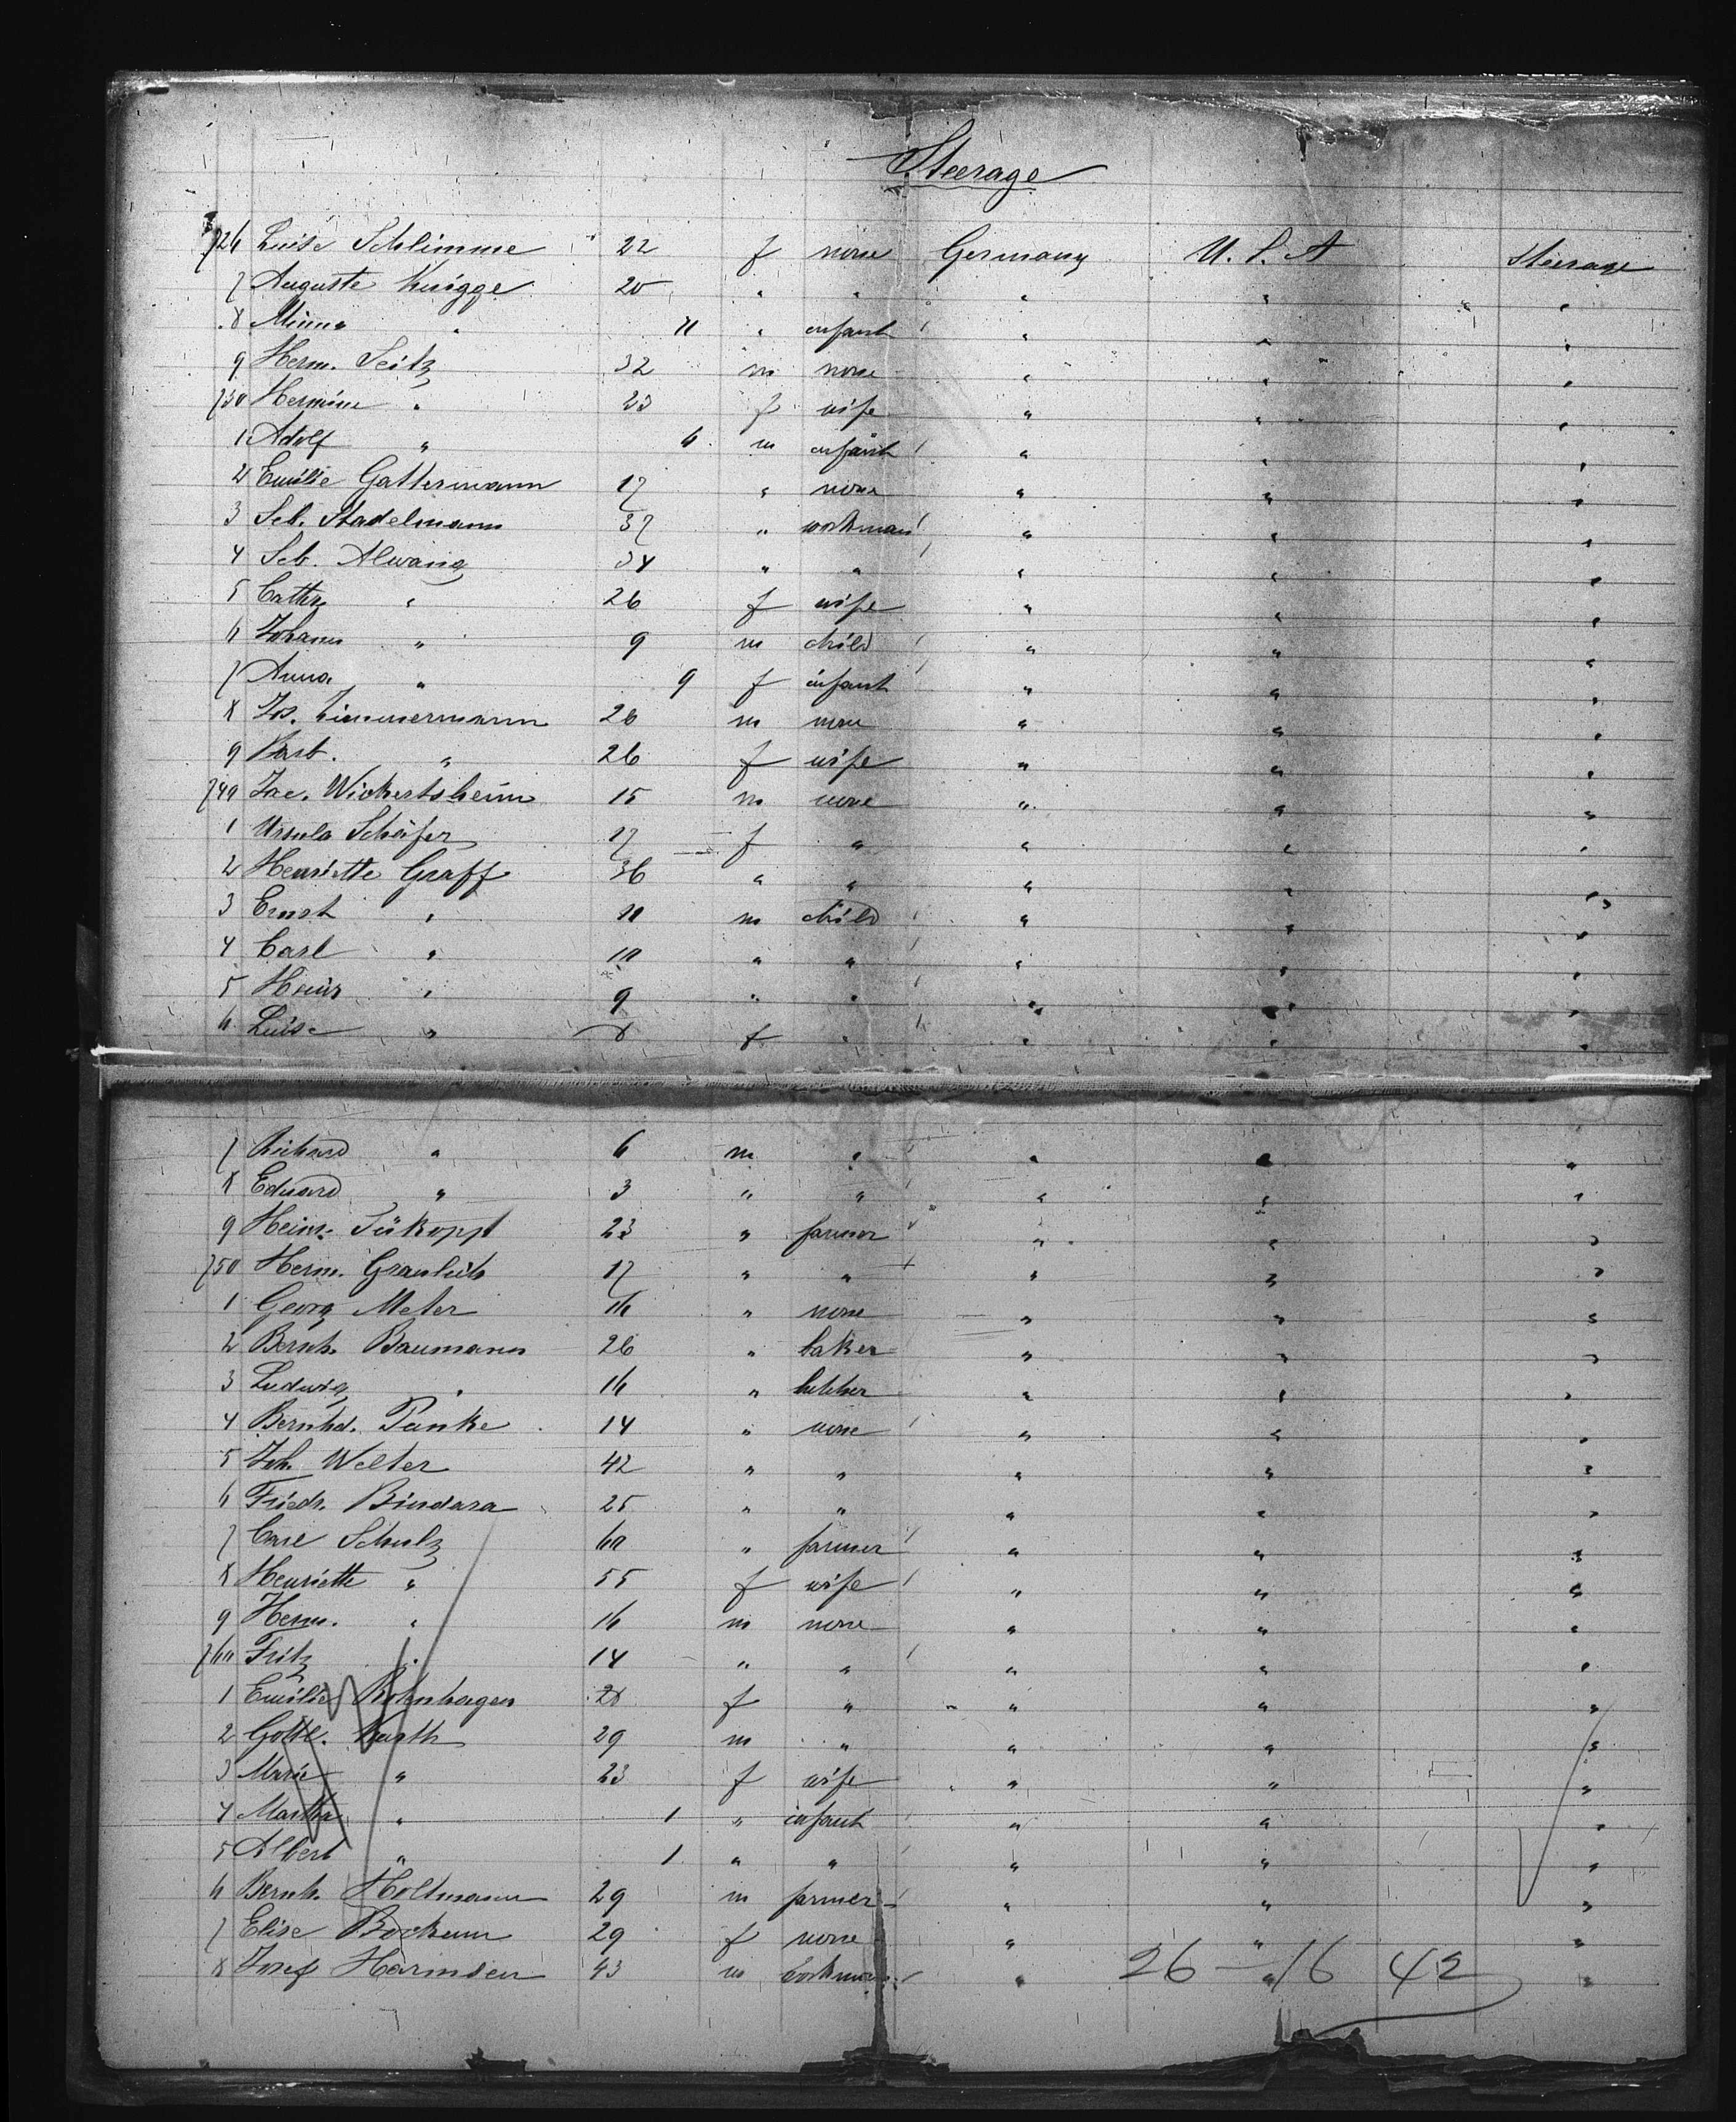 Steerage
726 Luise Schlimme 22 f none Germany U. S. A Steerage
7 Auguste Knigge 20 " " " " "
8 Minna " 11 " infant " " "
9 Herm. Seitz 32 m none " " "
730 Hermine " 23 f wife " " "
1 Adolf " 6 m infant " " "
2 Emilie Gattermann 17 " none " " "
3 Seb. Stadelmann 37 " workman " " "
4 Seb. Alwang 34 " " " " "
5 Cath. " 26 f wife " " "
6 Johann " 9 m child " " "
7 Anna " 9 f infant " " "
8 Jos. Zimmermann 26 m none " " "
9 Barb. " 26 f wife " " "
740 Jac. Wickertsheim 15 m none " " "
1 Ursula Schäfer 17 f " " " "
2 Henriette Graff 36 " " " " "
3 Ernst " 11 m child " " "
4 Carl " 10 " " " " "
5 Heinr " 9 " " " " "
6 Luise " 8 f " " " "
7 Richard " 6 m " " " "
8 Eduard " 3 " " " " "
9 Heinr. 23 " farmer " " "
750 Herm. 17 " " " " "
1 Georg Meter 16 " none " " "
2 Bernh. Baumann 26 " baker " " "
3 Ludwig " 16 " butcher " " "
4 Bernhd. Panke 14 " none " " "
5 Joh. Welter 42 " " " " "
6 Friedr. Bindara 25 " " " " "
7 Carl Schulz 60 " farmer " " "
8 Henriette " 55 f wife " " "
9 Herm. " 16 m none " " "
760 Fritz " 14 " " " " "
1 Emilie 28 f " " " "
2 Gottl. Karth 29 m " " " "
3 Marie " 23 f wife " " "
4 Martha " 1 " infant " " "
5 Albert " 1 " " " " "
6 Bernh. Holtmann 29 m farmer " " "
7 Elise Bockum 29 f none " " "
8 Josef Harmsen 43 m workman " " "
26 – 16 42